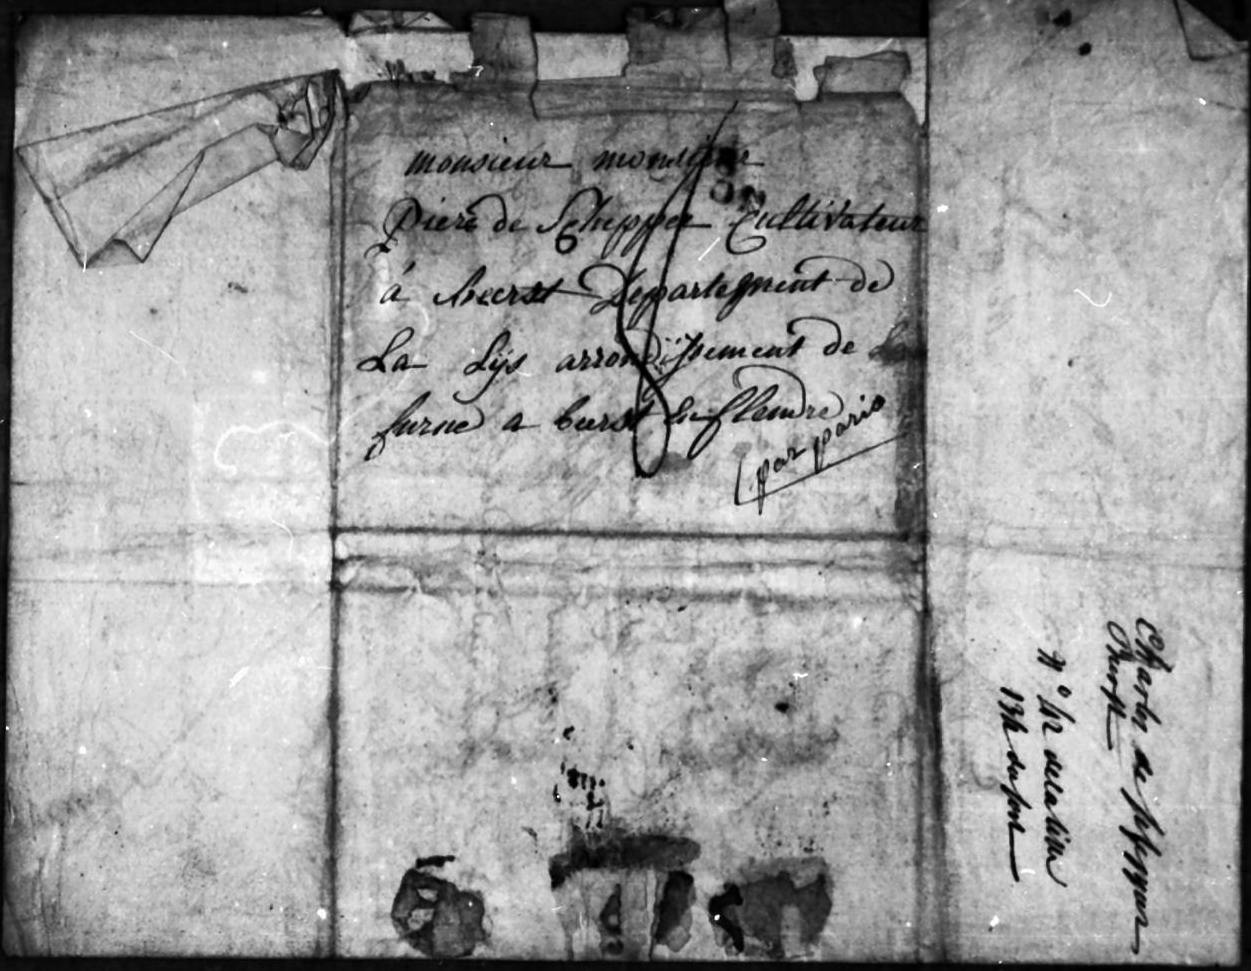 monsieur monsieur
Piere de Schepper Cultivateur
á beerst Departement de
La Lijs arrondissement de
furne a beerst En flendre
par paris
Charles de
N° 42
134